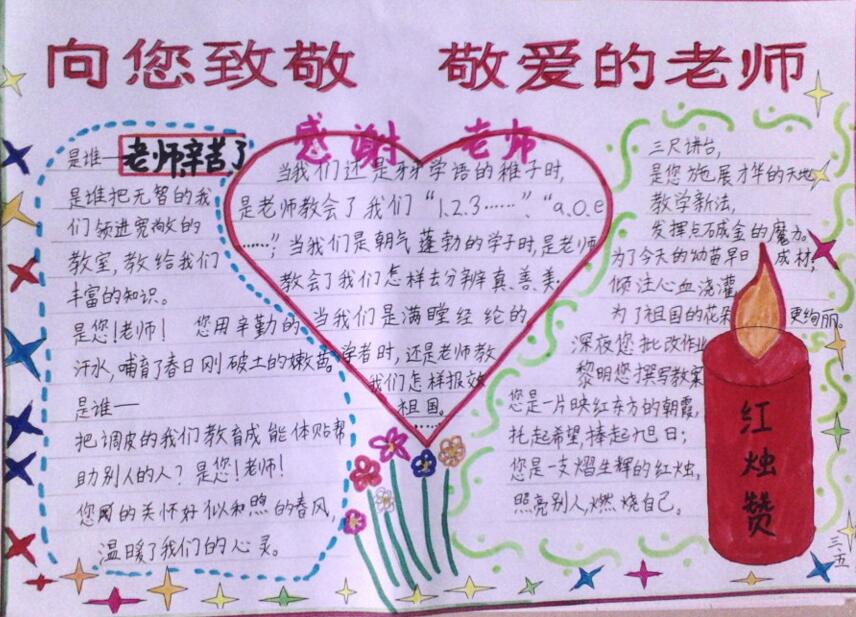 向您致敬 敬爱的老师
老师辛苦了
是谁—
是谁把无智的我
们领进宽敞的
教室,教给我们
丰富的知识。
是您!老师! 您用辛勤的
汗水,哺育了春日刚破土的嫩苗。
是谁—
把调皮的我们教育成能体贴帮
助别人的人?是您!老师!
您的关怀好似和煦的春风,
温暖了我们的心灵。
感谢 老师
当我们还是牙牙学语的稚子时,
是老师教会了我们“1.2.3……”、“a.o.e
……”;当我们是朝气蓬勃的学子时,是老师
教会了我们怎样去分辨真、善、美;
当我们是满膛经纶的
学者时,还是老师教
我们怎样报效
祖国。
……
三尺讲台,
是您施展才华的天地
教学新法,
发挥点石成金的魔力。
为了今天的幼苗早日成材,
倾注心血浇灌
为了祖国的花朵更绚丽。
深夜您批改作业
黎明您撰写教案
您是一片映红东方的朝霞,
托起希望,捧起旭日;
您是一支熠生辉的红烛,
照亮别人,燃烧自己。
红烛赞
三.五